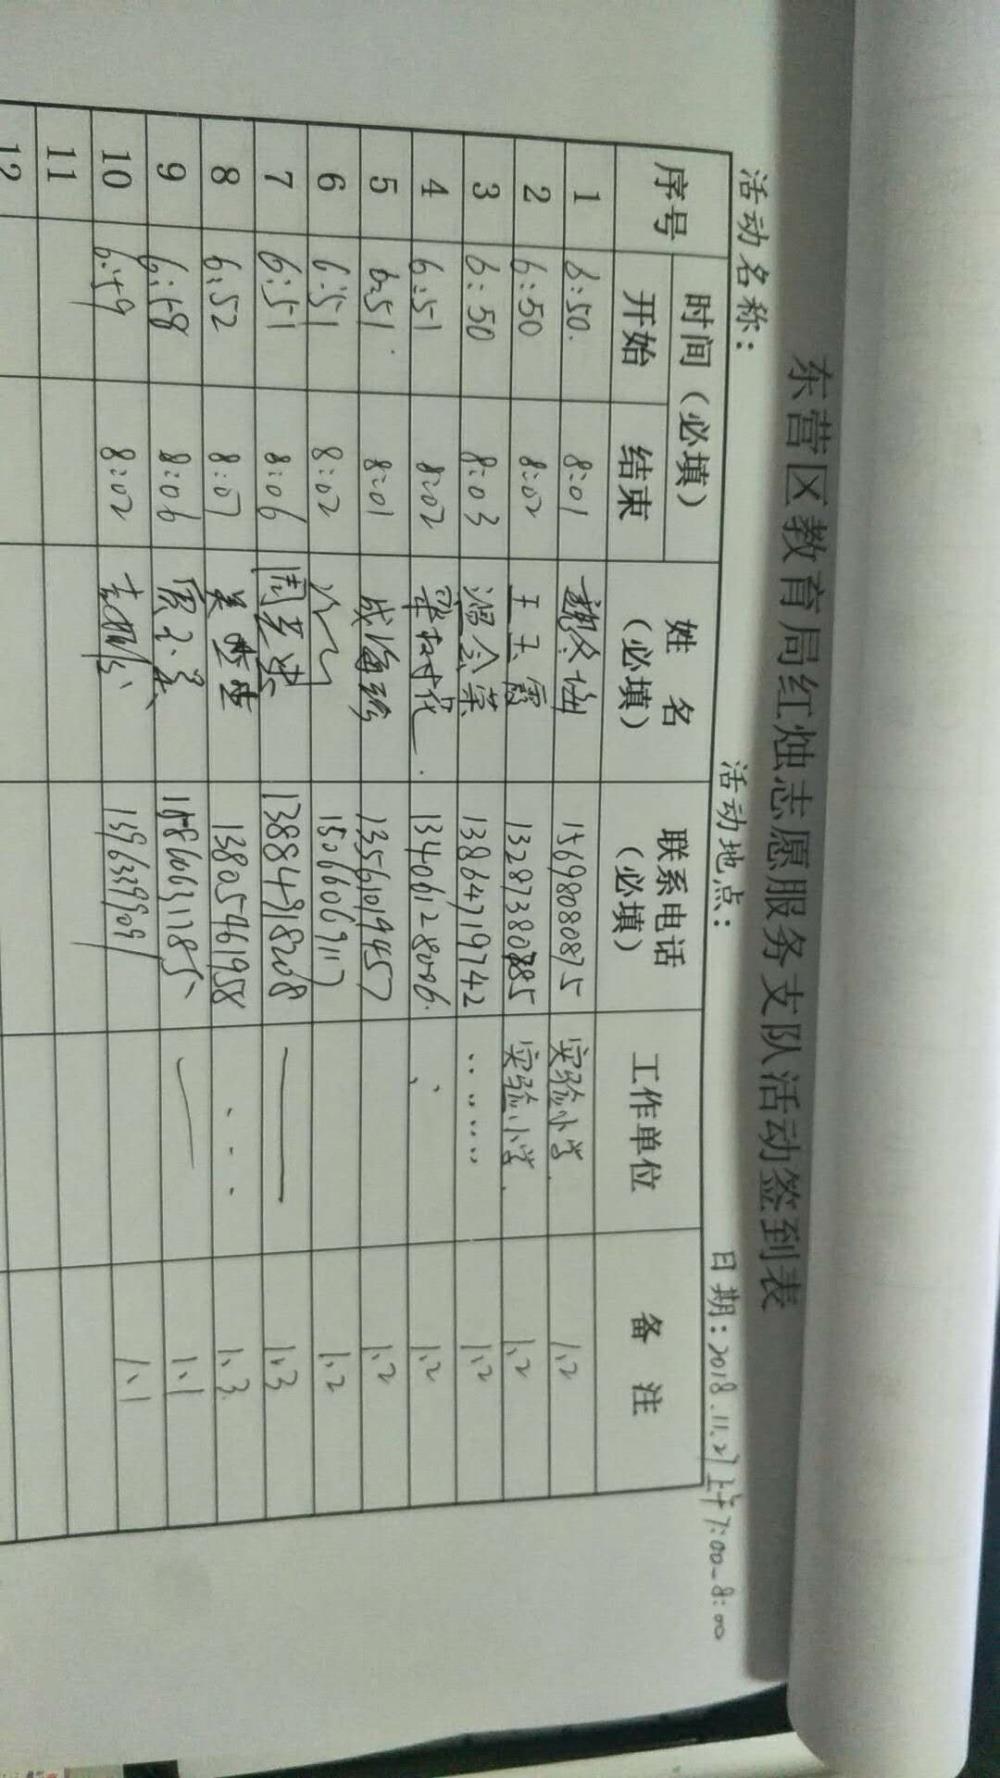 东营区教育局红烛志愿服务支队活动签到表
活动名称： 活动地点： 日期：2018.11.21上午7:00-8:00
序号 时间（必填） 姓名（必填） 联系电话（必填） 工作单位 备注
开始 结束
1 6:50. 8:01 15698080875 实验小学. 1.2
2 6:50 8:02 王玉霞 13287380785 实验小学. 1.2
3 6:50 8:03 13864719742 1.2
4 6:51 8:02 13406128006. 1.2
5 6:51. 8:01 成海珍 13561019457 1.2
6 6:51 8:02 15066069117 1.2
7 6:51 8:06 13884718208 —— 1.3
8 6:52 8:07 13805461958 ... 1.3
9 6:58 8:06 — 1.1
10 6:59 8:02 1.1
11
12